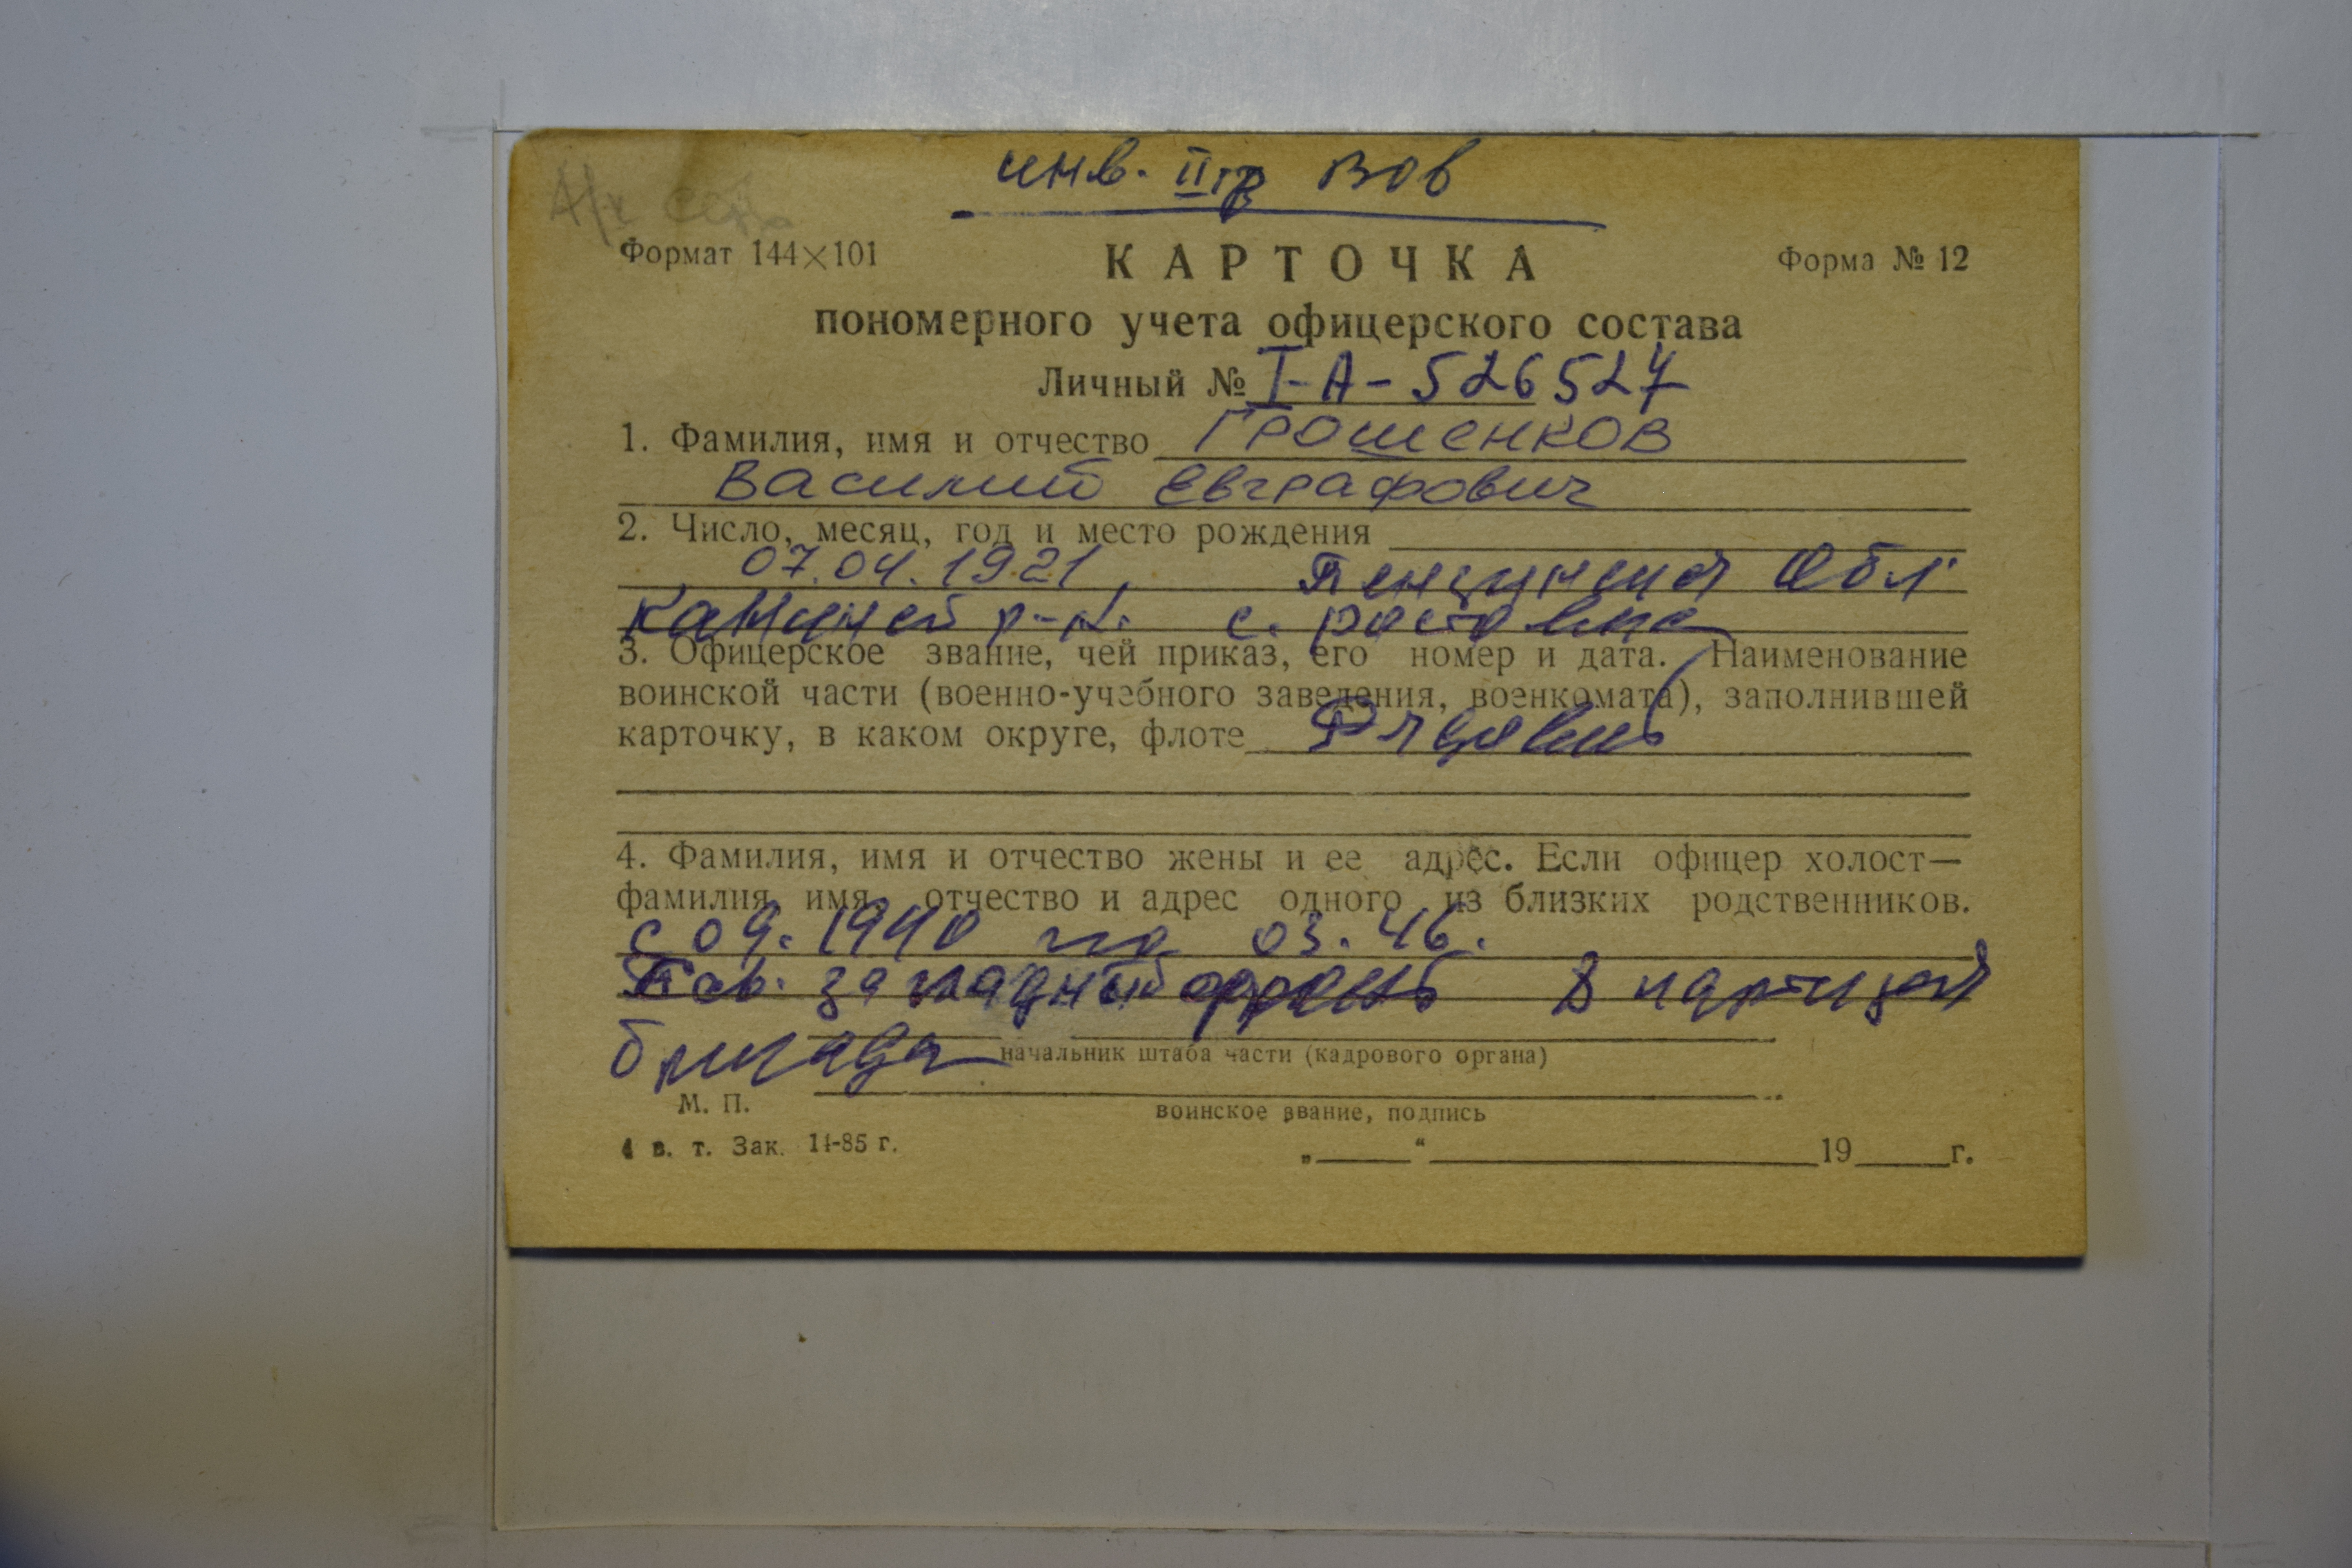 инв. II гр ВОВ
Формат 144×101 КАРТОЧКА Форма № 12
пономерного учета офицерского состава
Личный № I-А-526527
1. Фамилия, имя и отчество Грошенков
Василий Евграфович
2. Число, месяц, год и место рождения
07.04.1921, Обл
р-н. с.
3. Офицерское звание, чей приказ, его номер и дата. Наименование
воинской части (военно-учебного заведения, военкомата), заполнившей
карточку, в каком округе, флоте Рядовий
4. Фамилия, имя и отчество жены и ее адрес. Если офицер холост—
фамилия, имя, отчество и адрес одного из близких родственников.
с 09.1940 по 03.46.
западный фронт В
бригада начальник штаба части (кадрового органа)
М. П. воинское звание, подпись
в. т. Зак. 14-85 г. „ “ 19 г.